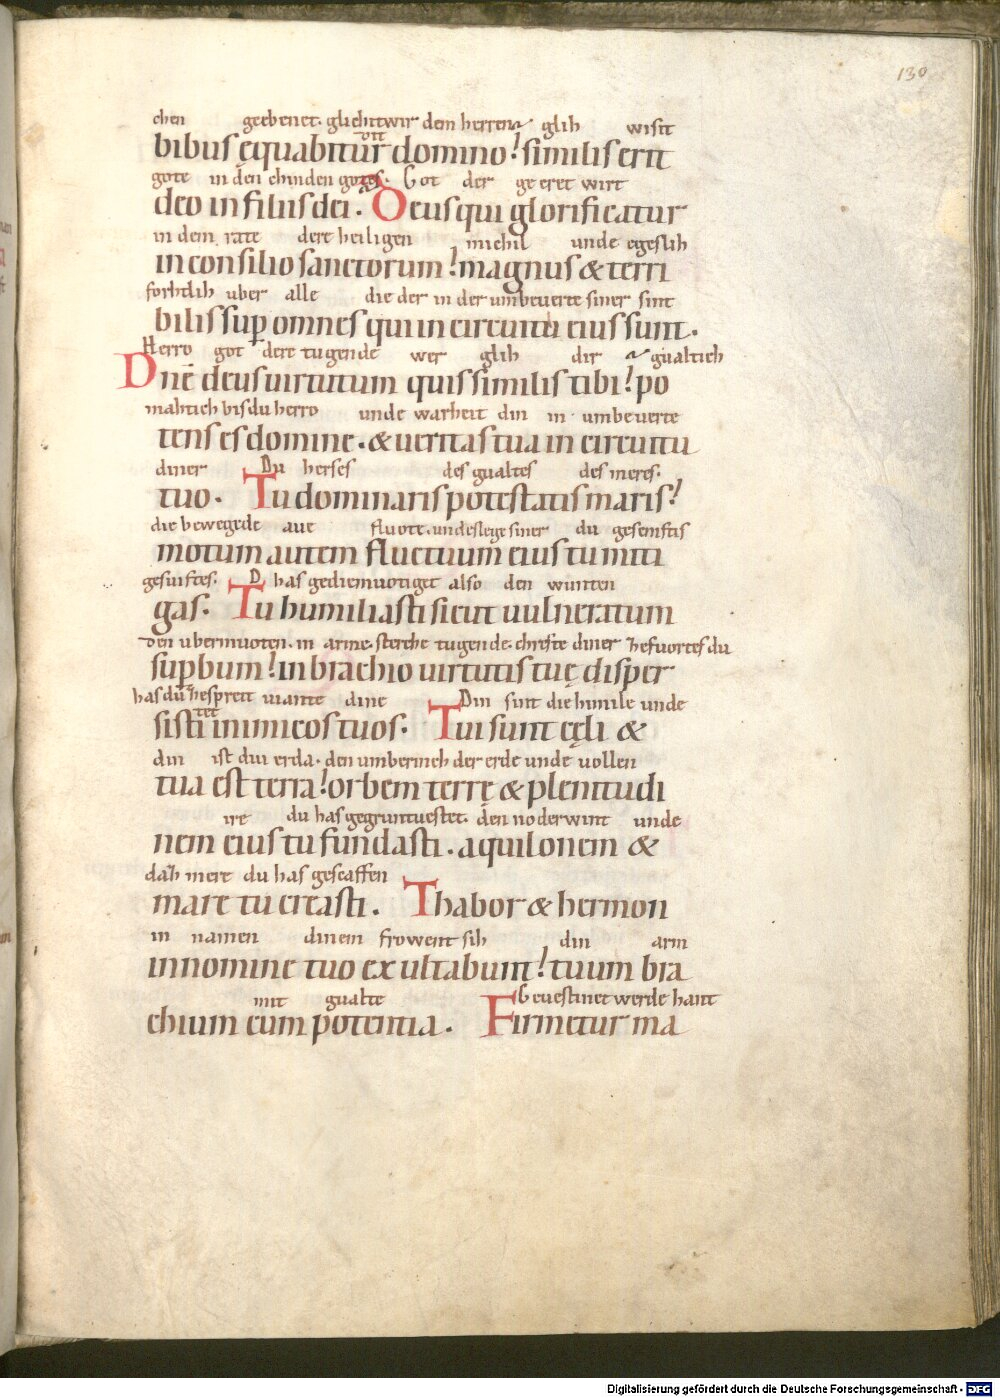 130
chen geebenet. glichit wir dem herren glih wisit
bibus ęquabitur domino! similis erit
gote in den chinden gotes. Got der geeret wirt
deo in filiis dei. Deus qui glorificatur
in dem rate dere heiligen michil unde egeslih
in consilio sanctorum! magnus & terri
forhtlih uber alle die der in der umbeuerte siner sint
bilis sup omnes qui in circuitu eius sunt.
Herro got dere tugende wer glih dir gualtich
Dn̄e deus uirtutum quis similis tibi! po
mahtich bis du herro unde warheit din in umbeuerte
tens es domine. & ueritas tua in circuitu
diner Du herses des gualtes des meres.
tuo. Tu dominaris potestatis maris!
die bewegede aue fluote. undeslege siner du gesemftis
motum autem fluctuum eius tu miti
gesuiftes. D has gediemuotiget also den wunten
gas. Tu humiliasti sicut uulneratum
den ubermuoten. in arme. sterche tugende. chrefte diner zefuortes du
supbum! in brachio uirtutis tuę disper
has du zespreit uiante dine Din sint die himile unde
sisti inimicos tuos. Tui sunt cęli &
din ist diu erda. den umberinch der erde unde uollen
tua est terra! orbem terrę & plenitudi
ire du has gegruntuestet. den norderwint unde
nem eius tu fundasti. aquilonem &
daz mere du has gescaffen
mare tu creasti. Thabor & hermon
in namen dinem frowent sih din arm
in nomine tuo exultabunt! tuum bra
mit gualte Geuestinet werde hant
chium cum potentia. Firmetur ma
Digitalisierung gefördert durch die Deutsche Forschungsgemeinschaft - DFG